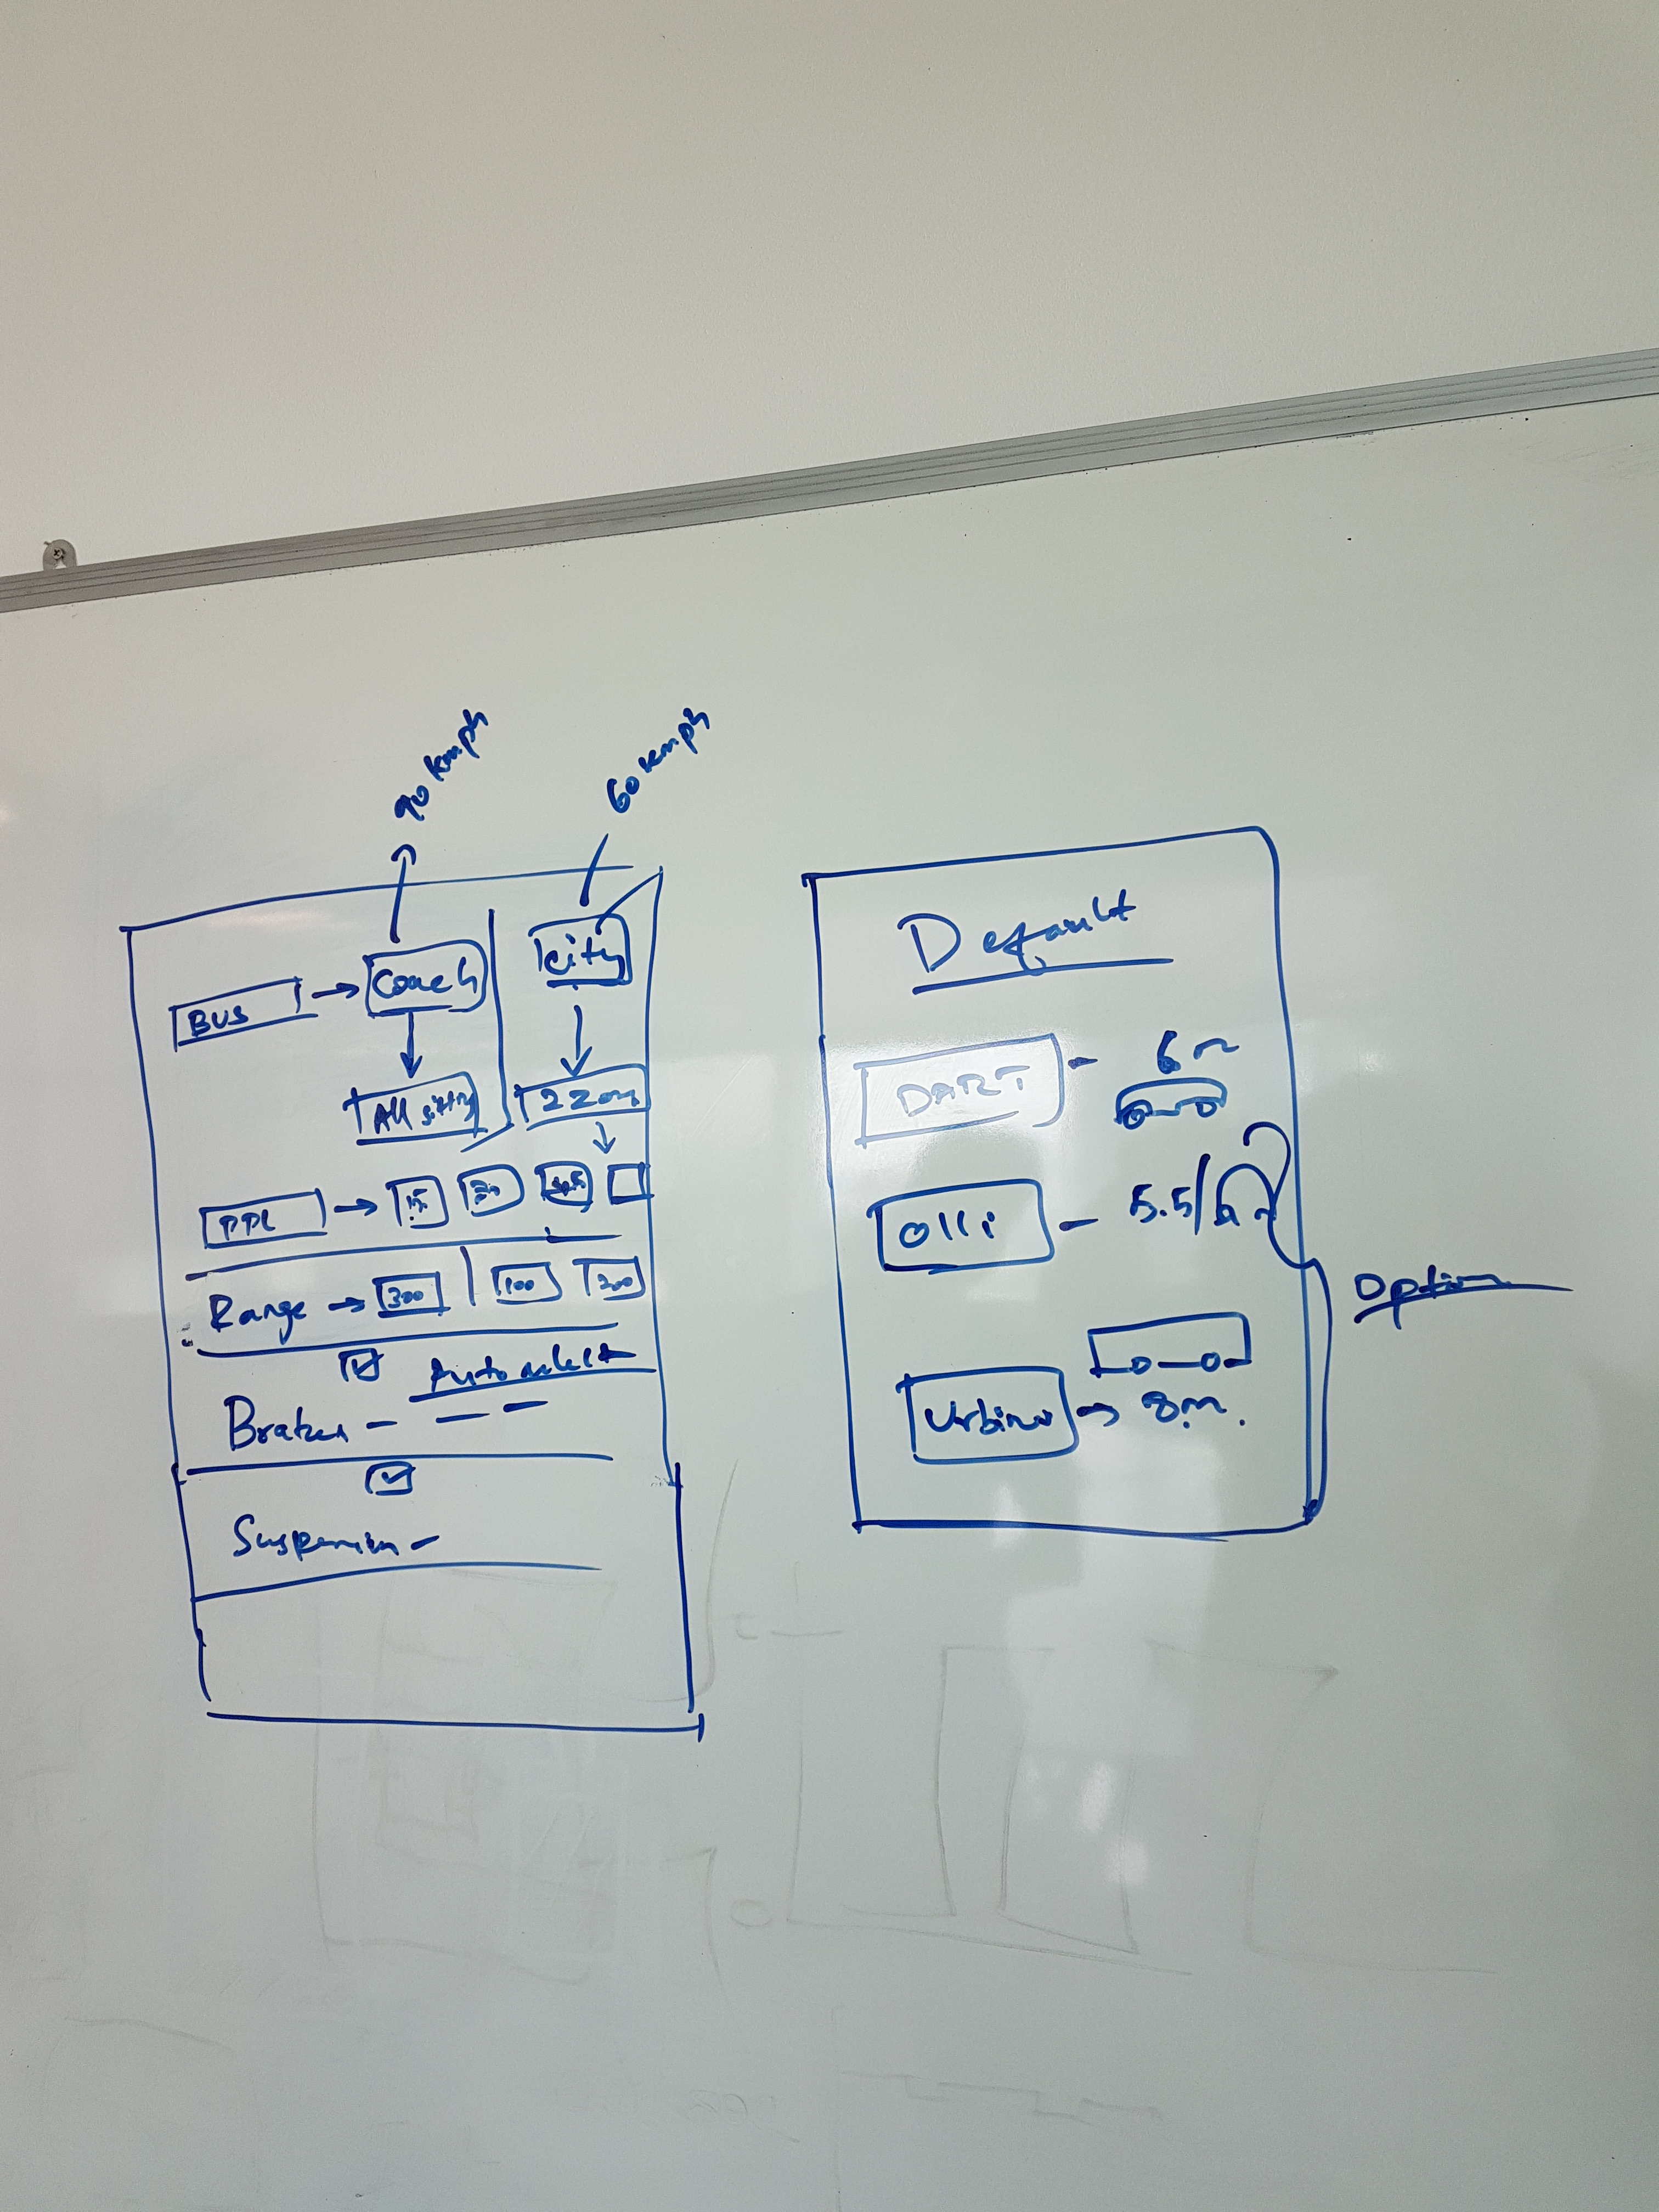 90 kmph
60 kmph
BUS → Coach
City
All sitting
PPL → 15
Range → 300 | 100 200
Auto select
Brakes –
Suspension –
Default
DART – 6m
Olli – 5.5/6m
Urbino → 8m.
Option